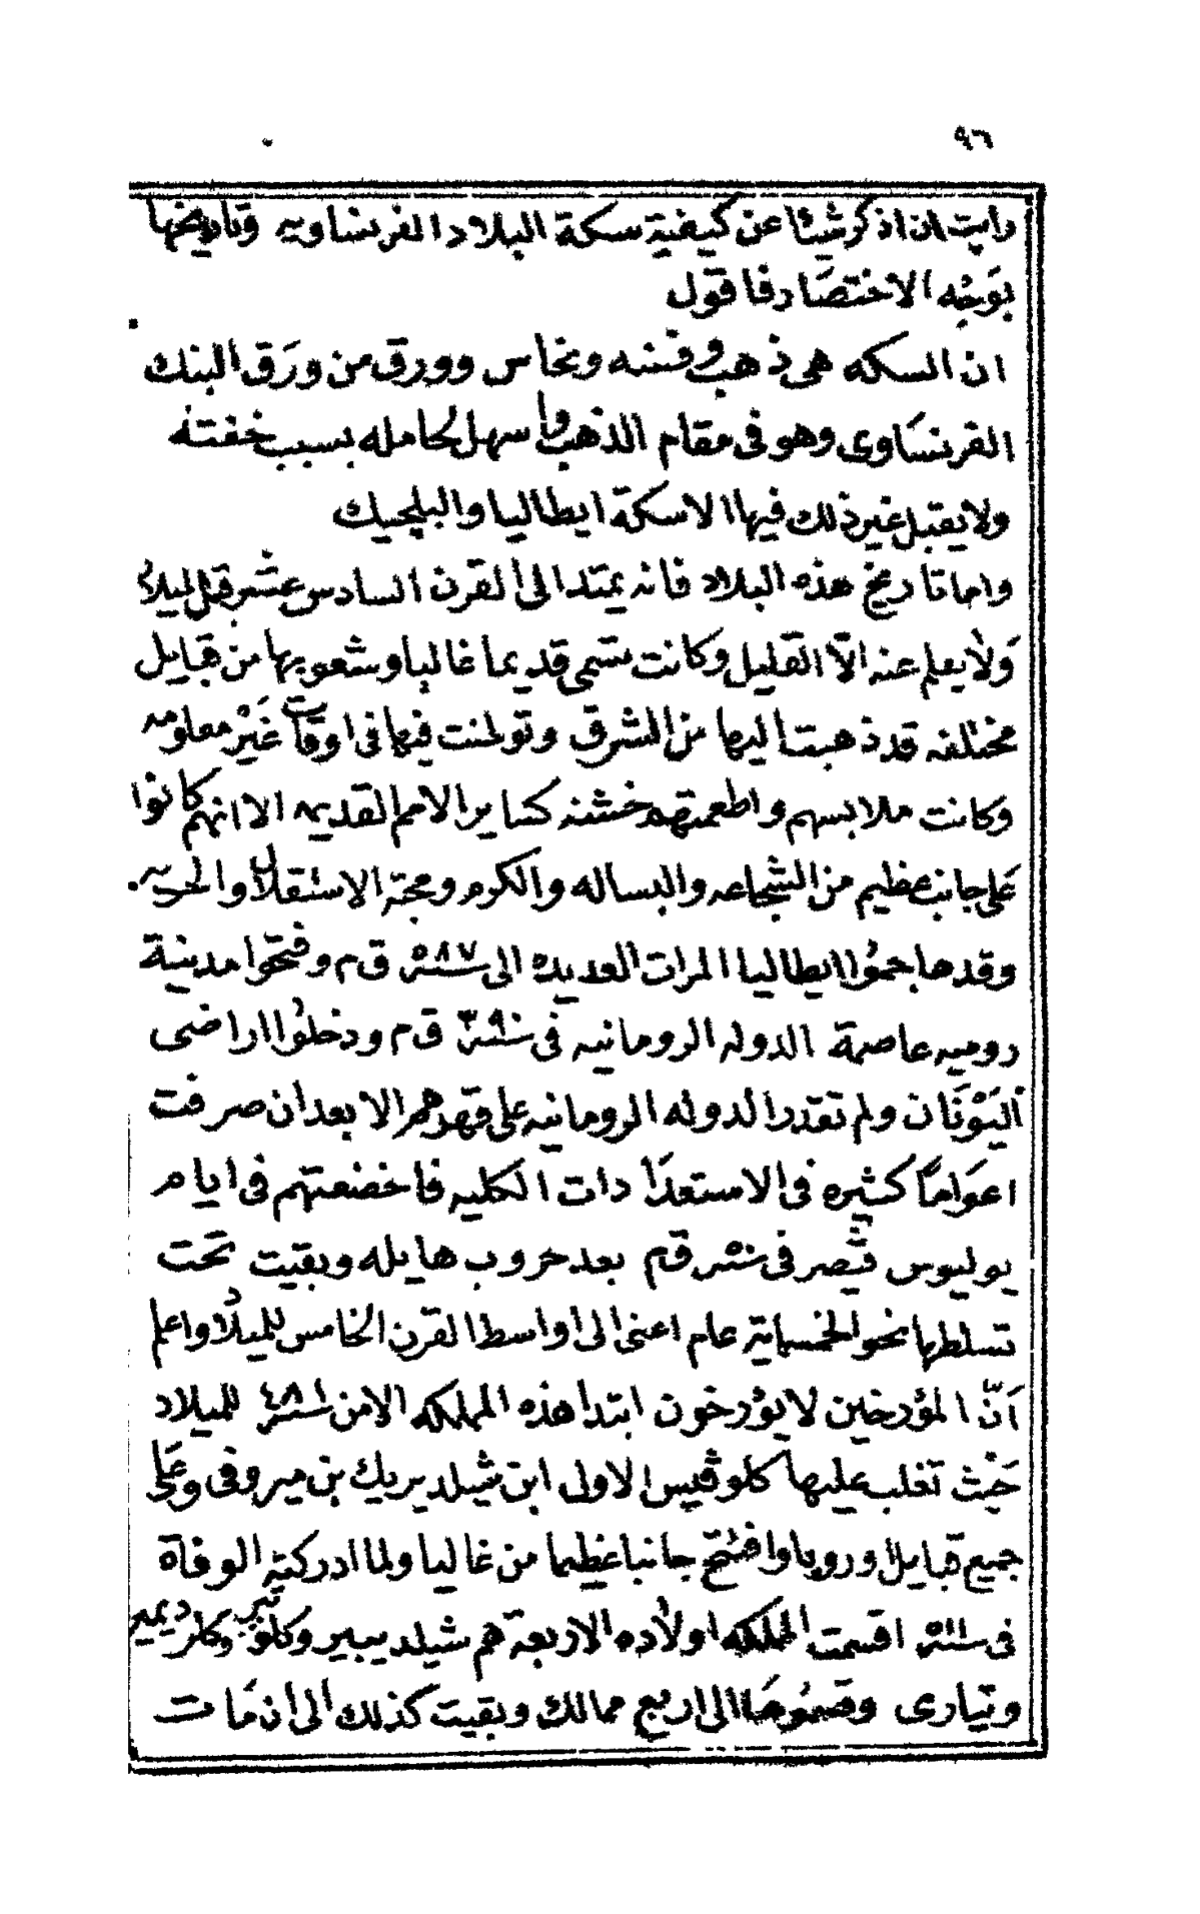 ٩٦
رايت ان اذكر شيئا عن كيفية سكة البلاد الفرنساويه وتاريخها
بوَجْه الاختصَار فاقول
ان السكه هى ذهب وفضه ونحاس وورق من ورَق البنك
الفرنسَاوى وهو فى مقام الذهب واسهل لحامله بسبب خفته
ولا يقبل غير ذلك فيها الا سكة ايطاليا والبلچيك
واما تاريخ هذه البلاد فانه يمتد الى القرن السادس عشر قبل الميلاد
وَلا يعلم عنه الّا القليل وكانت تسمى قديما غاليا وشعوبها من قبايل
مختلفه قد ذهبت اليها من الشرق وتوطنت فيها فى اوقات غَيْر معلومه
وكانت ملابسهم واطعمتهم خشنه كساير الامم القديمه الا انهم كانوا
عَلى جانب عظيم من الشجاعه والبساله والكرم ومحبة الاستقلال والحريه
وقد هاجموُا ايطاليا المرات العديده الى سنة ٥٨٧ ق م وفتحوا مدينة
روميه عاصمة الدوله الرومانيه فى سنة ٣٩٠ ق م ودخلوُا اراضى
اليَوْنَان ولم تقدر الدوله الرومانيه على قهرهم الا بعد ان صرفت
اعوَامًا كثيره فى الاستعدَادات الكليه فاخضعتهم فى ايام
يوليوس قيصر فى سنة ٥٠ ق م بعد حروب هايله وبقيت تحت
تسلطها نحو الخمسماية عام اعنى الى اواسط القرن الخامس للميلاد واعلم
اَنّ المؤرخين لا يؤرخون ابتدا هذه المملكه الا من سنة ٤٨١ للميلاد
حَيْث تغلب عليها كلوڤيس الاول ابن شيلديريك بن ميروفى وعَلى
جميع قبايل اوروپا وافتتح جانبا عظيما من غاليا ولما ادركته الوفاة
فى سنة ٥١١ اقسمت المملكه اولاده الاربعة هم شيلديبير وكلوتير وكلوديمير
وتيارى وقسموُهَا الى اربع ممالك وبقيت كذلك الى ان مَات